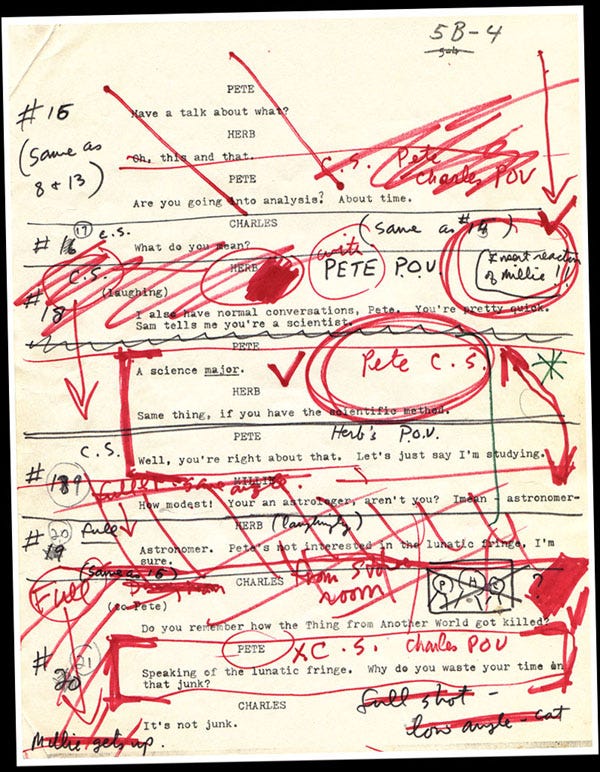 5B-4
PETE
#15
Have a talk about what?
HERB
(Same as
8 & 13)
Oh, this and that.
C.S. Pete
Charles POV
PETE
Are you going into analysis? About time.
CHARLES
(Same as #15)
17 C.S.
#16
What do you mean?
Insert reaction
of Millie!!
with
PETE P.O.V.
HERB
C.S.
(laughing)
#18
I also have normal conversations, Pete. You're pretty quick.
Sam tells me you're a scientist.
PETE
Pete C.S.
A science major.
HERB
Same thing, if you have the scientific method.
PETE
Herb's P.O.V.
C.S.
Well, you're right about that. Let's just say I'm studying.
MILLIE
full - same angle.
#189
How modest! Your an astrologer, aren't you? Imean - astronomer-
HERB (laughingly)
20 full
#19
Astronomer. Pete's not interested in the lunatic fringe, I'm
sure.
(same as 16)
CHARLES
from
room
Full
(to Pete)
P H C ?
Do you remember how the Thing from Another World got killed?
PETE
X C.S. Charles POV
21
#20
Speaking of the lunatic fringe. Why do you waste your time on
that junk?
CHARLES
full shot -
low angle - cat
It's not junk.
Millie gets up.